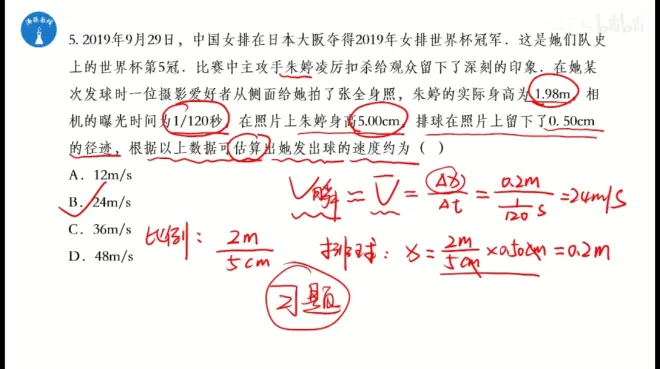 5. 2019年9月29日，中国女排在日本大阪夺得2019年女排世界杯冠军．这是她们队史
上的世界杯第5冠．比赛中主攻手朱婷凌厉扣杀给观众留下了深刻的印象．在她某
次发球时一位摄影爱好者从侧面给她拍了张全身照，朱婷的实际身高为1.98m，相
机的曝光时间为1/120秒，在照片上朱婷身高5.00cm，排球在照片上留下了0.50cm
的径迹，根据以上数据可估算出她发出球的速度约为（ ）
A．12m/s
B．24m/s
C．36m/s
D．48m/s
V瞬 = V = Δx/Δt = 0.2m / 1/120 s = 24m/S
比例： 2m/5cm
排球： x = 2m/5cm × 0.50cm = 0.2m
习题
bilibili